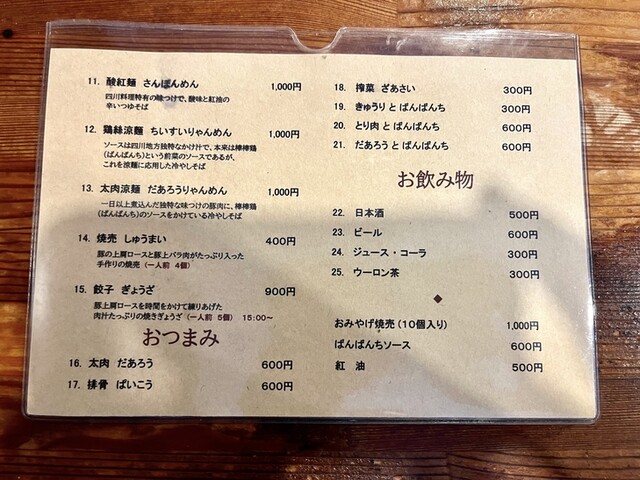 11. 酸紅麺 さんほんめん 1,000円
四川料理特有の味つけで、酸味と紅油の
辛いつゆそば
12. 鶏絲涼麺 ちいすいりゃんめん 1,000円
ソースは四川地方独特なかけ汁で、本来は棒棒鶏
(ばんばんち)という前菜のソースであるが、
これを涼麺に応用した冷やしそば
13. 太肉涼麺 だあろうりゃんめん 1,000円
一日以上煮込んだ独特な味つけの豚肉に、棒棒鶏
(ばんばんち)のソースをかけている冷やしそば
14. 焼売 しゅうまい 400円
豚の上肩ロースと豚上バラ肉がたっぷり入った
手作りの焼売 (一人前 4個)
15. 餃子 ぎょうざ 900円
豚上肩ロースを時間をかけて練りあげた
肉汁たっぷりの焼きぎょうざ (一人前 5個) 15:00～
おつまみ
16. 太肉 だあろう 600円
17. 排骨 ぱいこう 600円
18. 搾菜 ざあさい 300円
19. きゅうり と ばんばんち 300円
20. とり肉 と ばんばんち 600円
21. だあろう と ばんばんち 600円
お飲み物
22. 日本酒 500円
23. ビール 600円
24. ジュース・コーラ 300円
25. ウーロン茶 300円
◆
おみやげ焼売 (10個入り) 1,000円
ばんばんちソース 600円
紅 油 500円